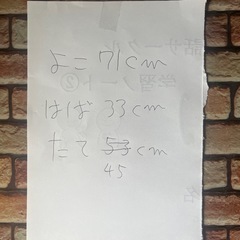 よこ 71cm
はば 33cm
たて 53cm
45